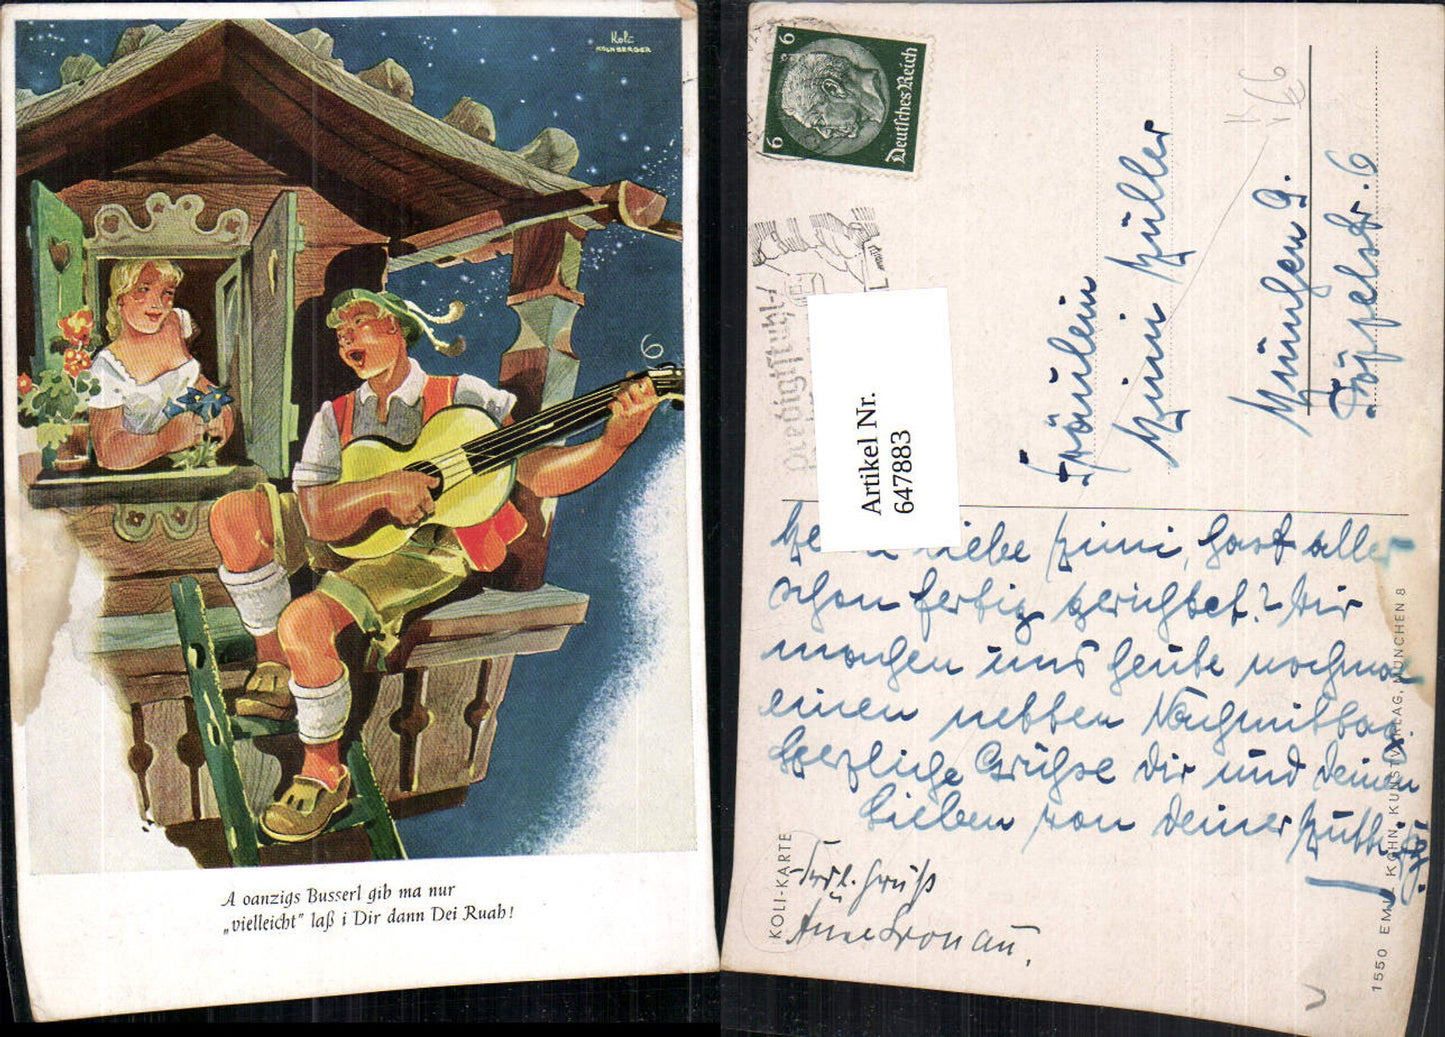 Koli
KOLNBERGER
6
A oanzigs Busserl gib ma nur
„vielleicht" laß i Dir dann Dei Ruah!
6
6
Deutsches Reich
Artikel Nr.
647883
Fräulein
Mimi Müller
München 9.
Töpelstr. 6
liebe Mimi, hast alles
schon fertig gerichtet? Wir
machen uns heute nochmal
einen netten Nachmittag.
Herzliche Grüße Dir und Deinen
Lieben von Deiner
Frdl. Grüße
KOLI-KARTE
1550 EMIL KÖHN, KUNSTVERLAG, MÜNCHEN 8